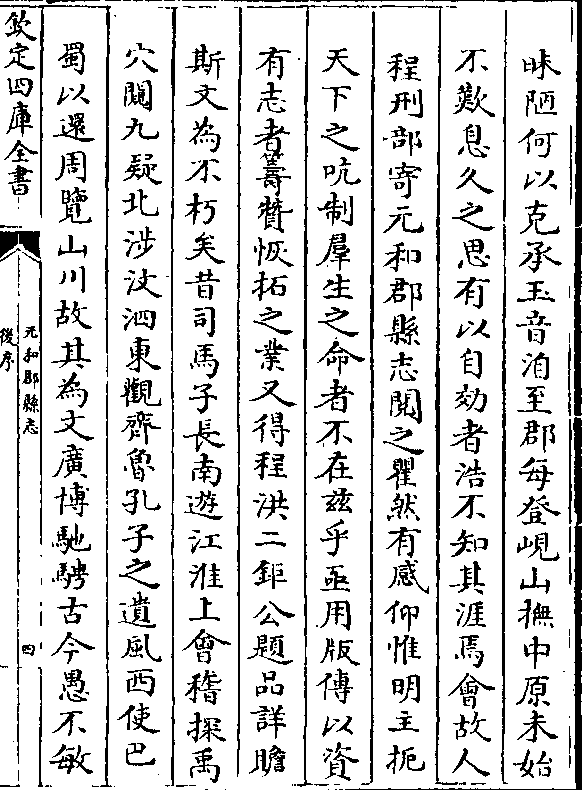 昧陋何以克承玉音洎至郡每登峴山撫中原未始
不歎息久之思有以自効者浩不知其涯焉會故人
程刑部寄元和郡縣志閱之瞿然有感仰惟明主扼
天下之吭制羣生之命者不在兹乎亟用版傳以資
有志者籌贊恢拓之業又得程洪二鉅公題品詳贍
斯文為不朽矣昔司馬子長南遊江淮上會稽探禹
穴闚九疑北涉汶泗東觀齊魯孔子之遺風西使巴
蜀以還周覽山川故其為文廣博馳騁古今愚不敏
欽定四庫全書
元和郡縣志
後序
四